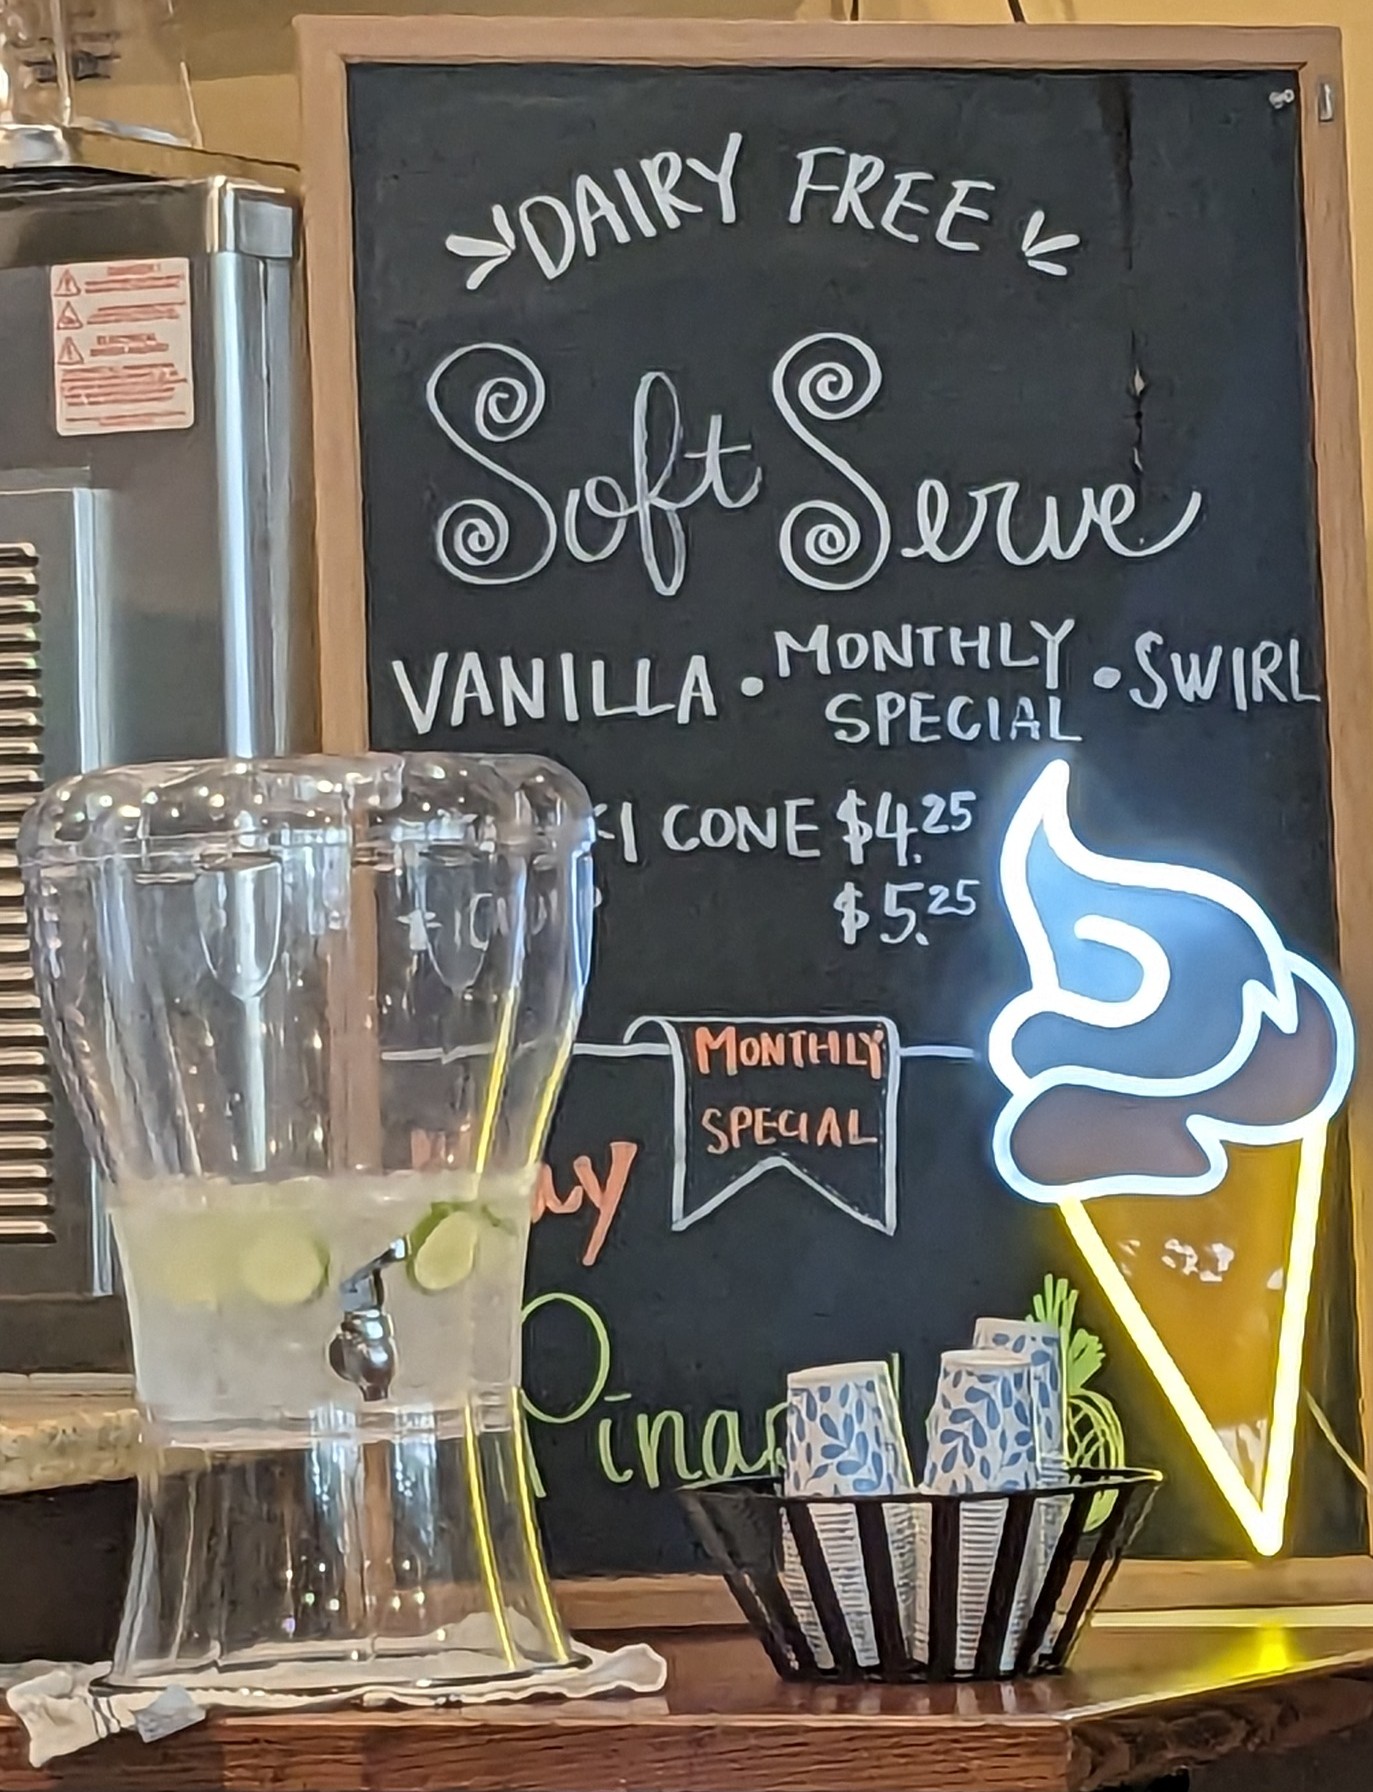 DAIRY FREE
Soft Serve
VANILLA • MONTHLY SPECIAL • SWIRL
CONE $4.25
$5.25
MONTHLY
SPECIAL